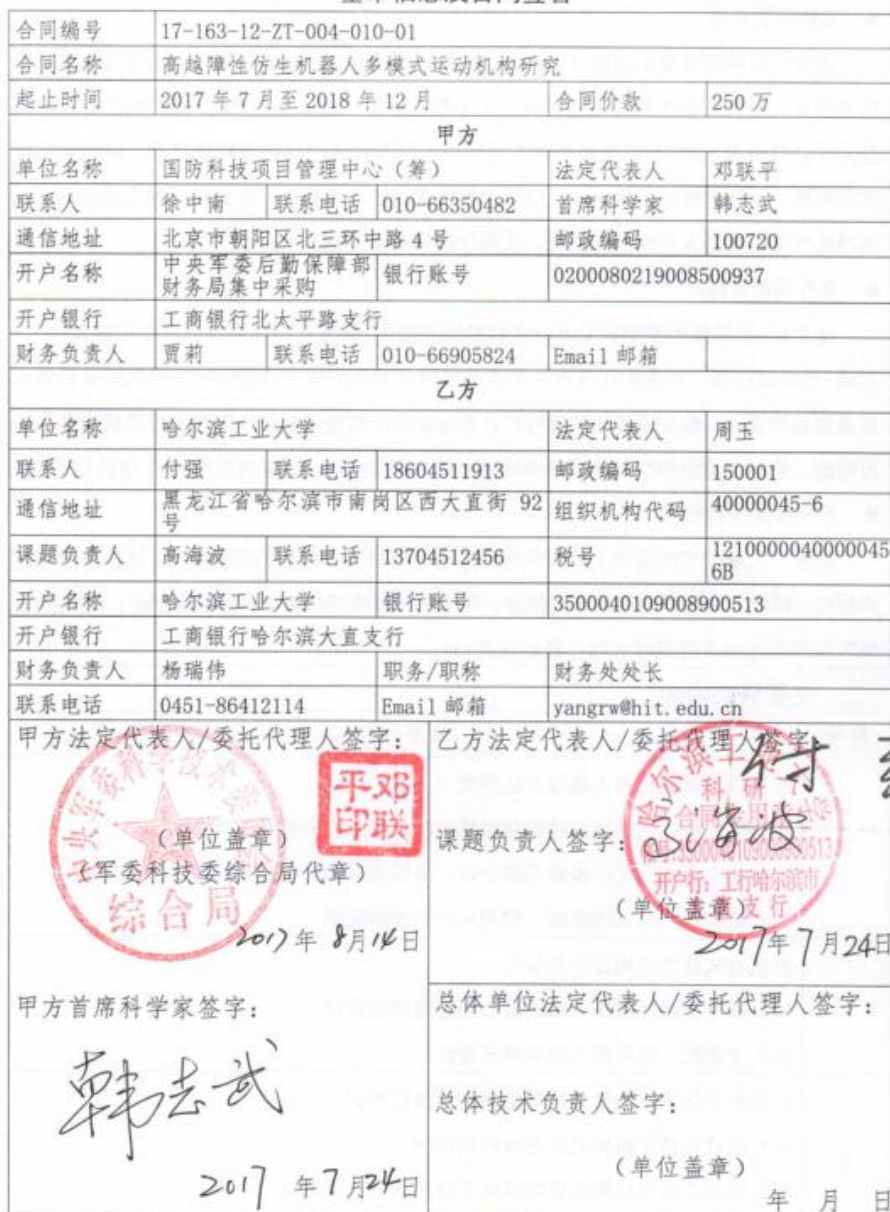 合同编号 17-163-12-ZT-004-010-01
合同名称 高越障性仿生机器人多模式运动机构研究
起止时间 2017 年 7 月至 2018 年 12 月 合同价款 250 万
甲方
单位名称 国防科技项目管理中心（筹） 法定代表人 邓联平
联系人 徐中南 联系电话 010-66350482 首席科学家 韩志武
通信地址 北京市朝阳区北三环中路 4 号 邮政编码 100720
开户名称 中央军委后勤保障部
财务局集中采购 银行账号 0200080219008500937
开户银行 工商银行北太平路支行
财务负责人 贾莉 联系电话 010-66905824 Email 邮箱
乙方
单位名称 哈尔滨工业大学 法定代表人 周玉
联系人 付强 联系电话 18604511913 邮政编码 150001
通信地址 黑龙江省哈尔滨市南岗区西大直街 92
号 组织机构代码 40000045-6
课题负责人 高海波 联系电话 13704512456 税号 1210000040000045
6B
开户名称 哈尔滨工业大学 银行账号 3500040109008900513
开户银行 工商银行哈尔滨大直支行
财务负责人 杨瑞伟 职务/职称 财务处处长
联系电话 0451-86412114 Email 邮箱 yangrw@hit.edu.cn
甲方法定代表人/委托代理人签字：
邓联
平印
（单位盖章）
（军委科技委综合局代章）
综合局
2017年 8月14日
乙方法定代表人/委托代理人签字：
付
课题负责人签字：
高海波
开户行：工行哈尔滨市
（单位盖章）
2017年 7月24日
甲方首席科学家签字：
韩志武
2017 年 7月24日
总体单位法定代表人/委托代理人签字：
总体技术负责人签字：
（单位盖章）
年 月 日